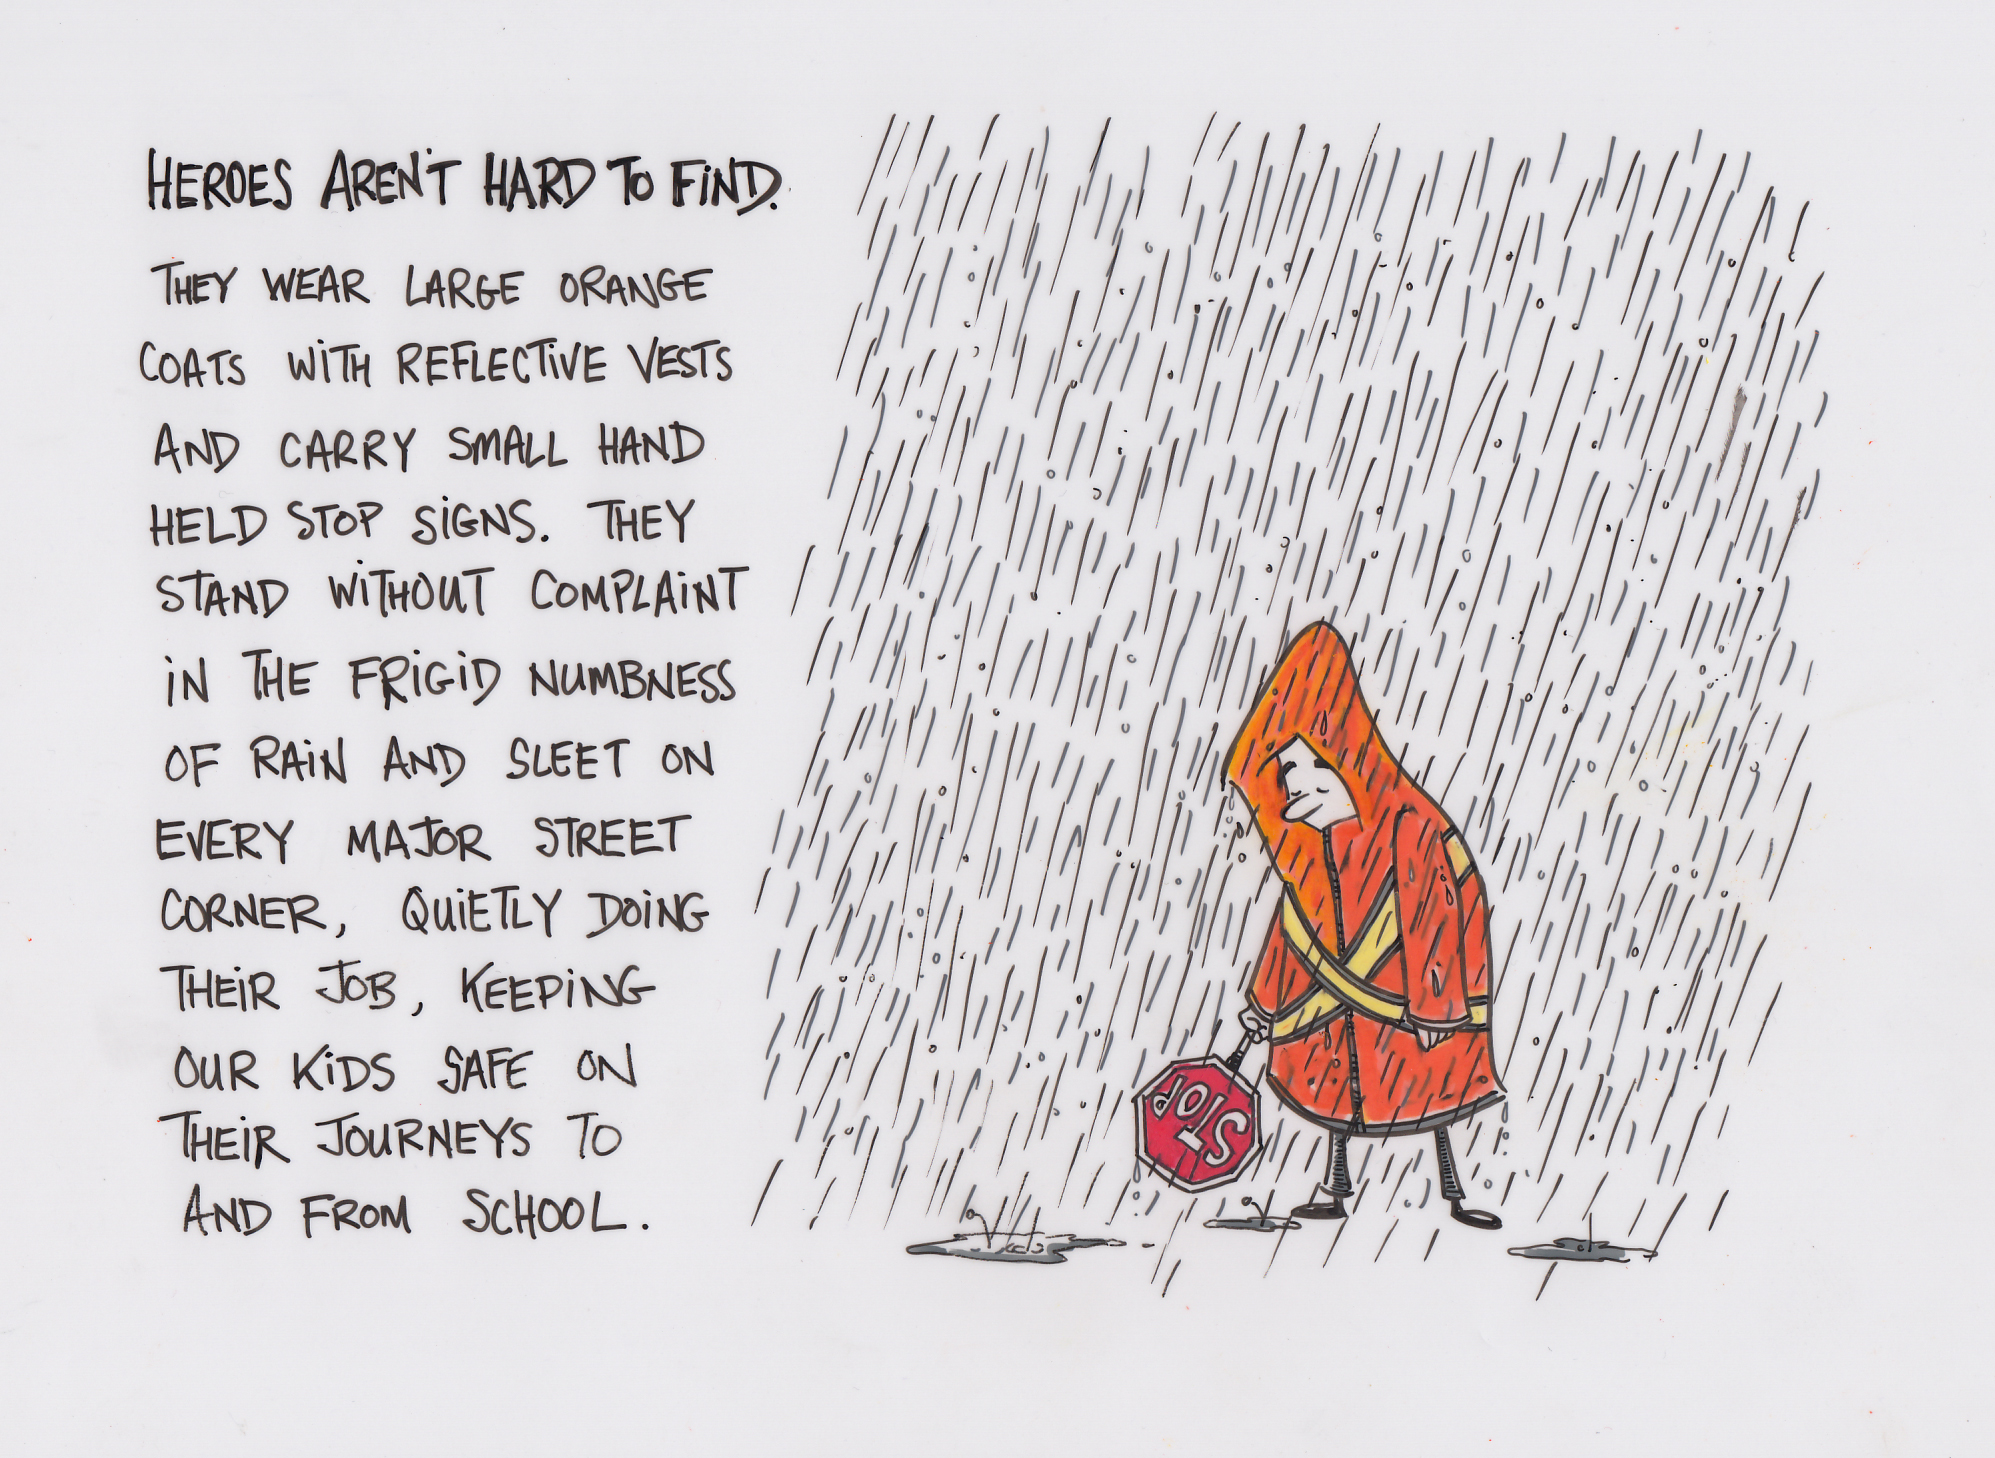 HEROES AREN'T HARD TO FIND.
THEY WEAR LARGE ORANGE
COATS WITH REFLECTIVE VESTS
AND CARRY SMALL HAND
HELD STOP SIGNS. THEY
STAND WITHOUT COMPLAINT
IN THE FRIGID NUMBNESS
OF RAIN AND SLEET ON
EVERY MAJOR STREET
CORNER, QUIETLY DOING
THEIR JOB, KEEPING
OUR KIDS SAFE ON
THEIR JOURNEYS TO
AND FROM SCHOOL.
STOP